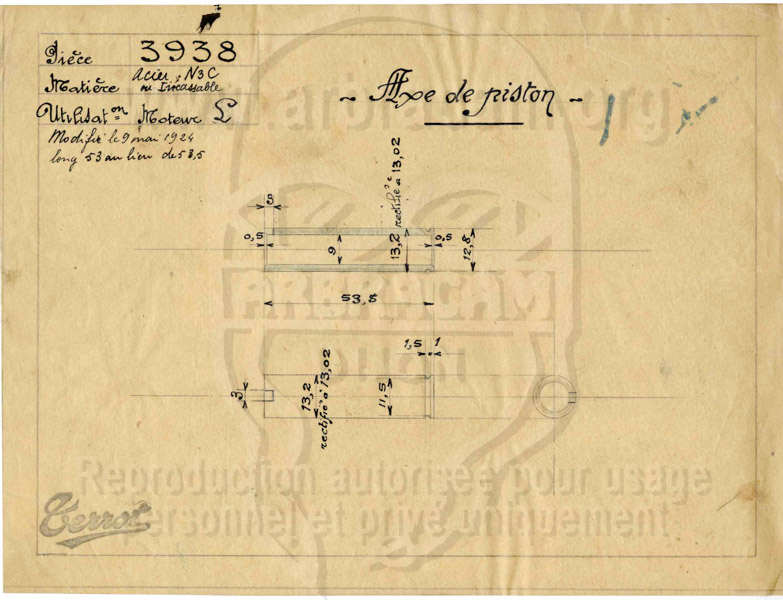 Pièce 3938
Matière Acier N3C
ou Incassable
Utilisat.on Moteur L
Modifié le 9 mai 1924
long 53 au lieu de 53,5
Axe de piston
3
0,5
9
13,2 rectifié à 13,02
0,5
12,8
53,5
1,5 1
3
13,2
rectifié à 13,02
11,5
Terrot
www.arbracam.org
ARBRACAM
DITION
Reproduction autorisée pour usage
personnel et privé uniquement